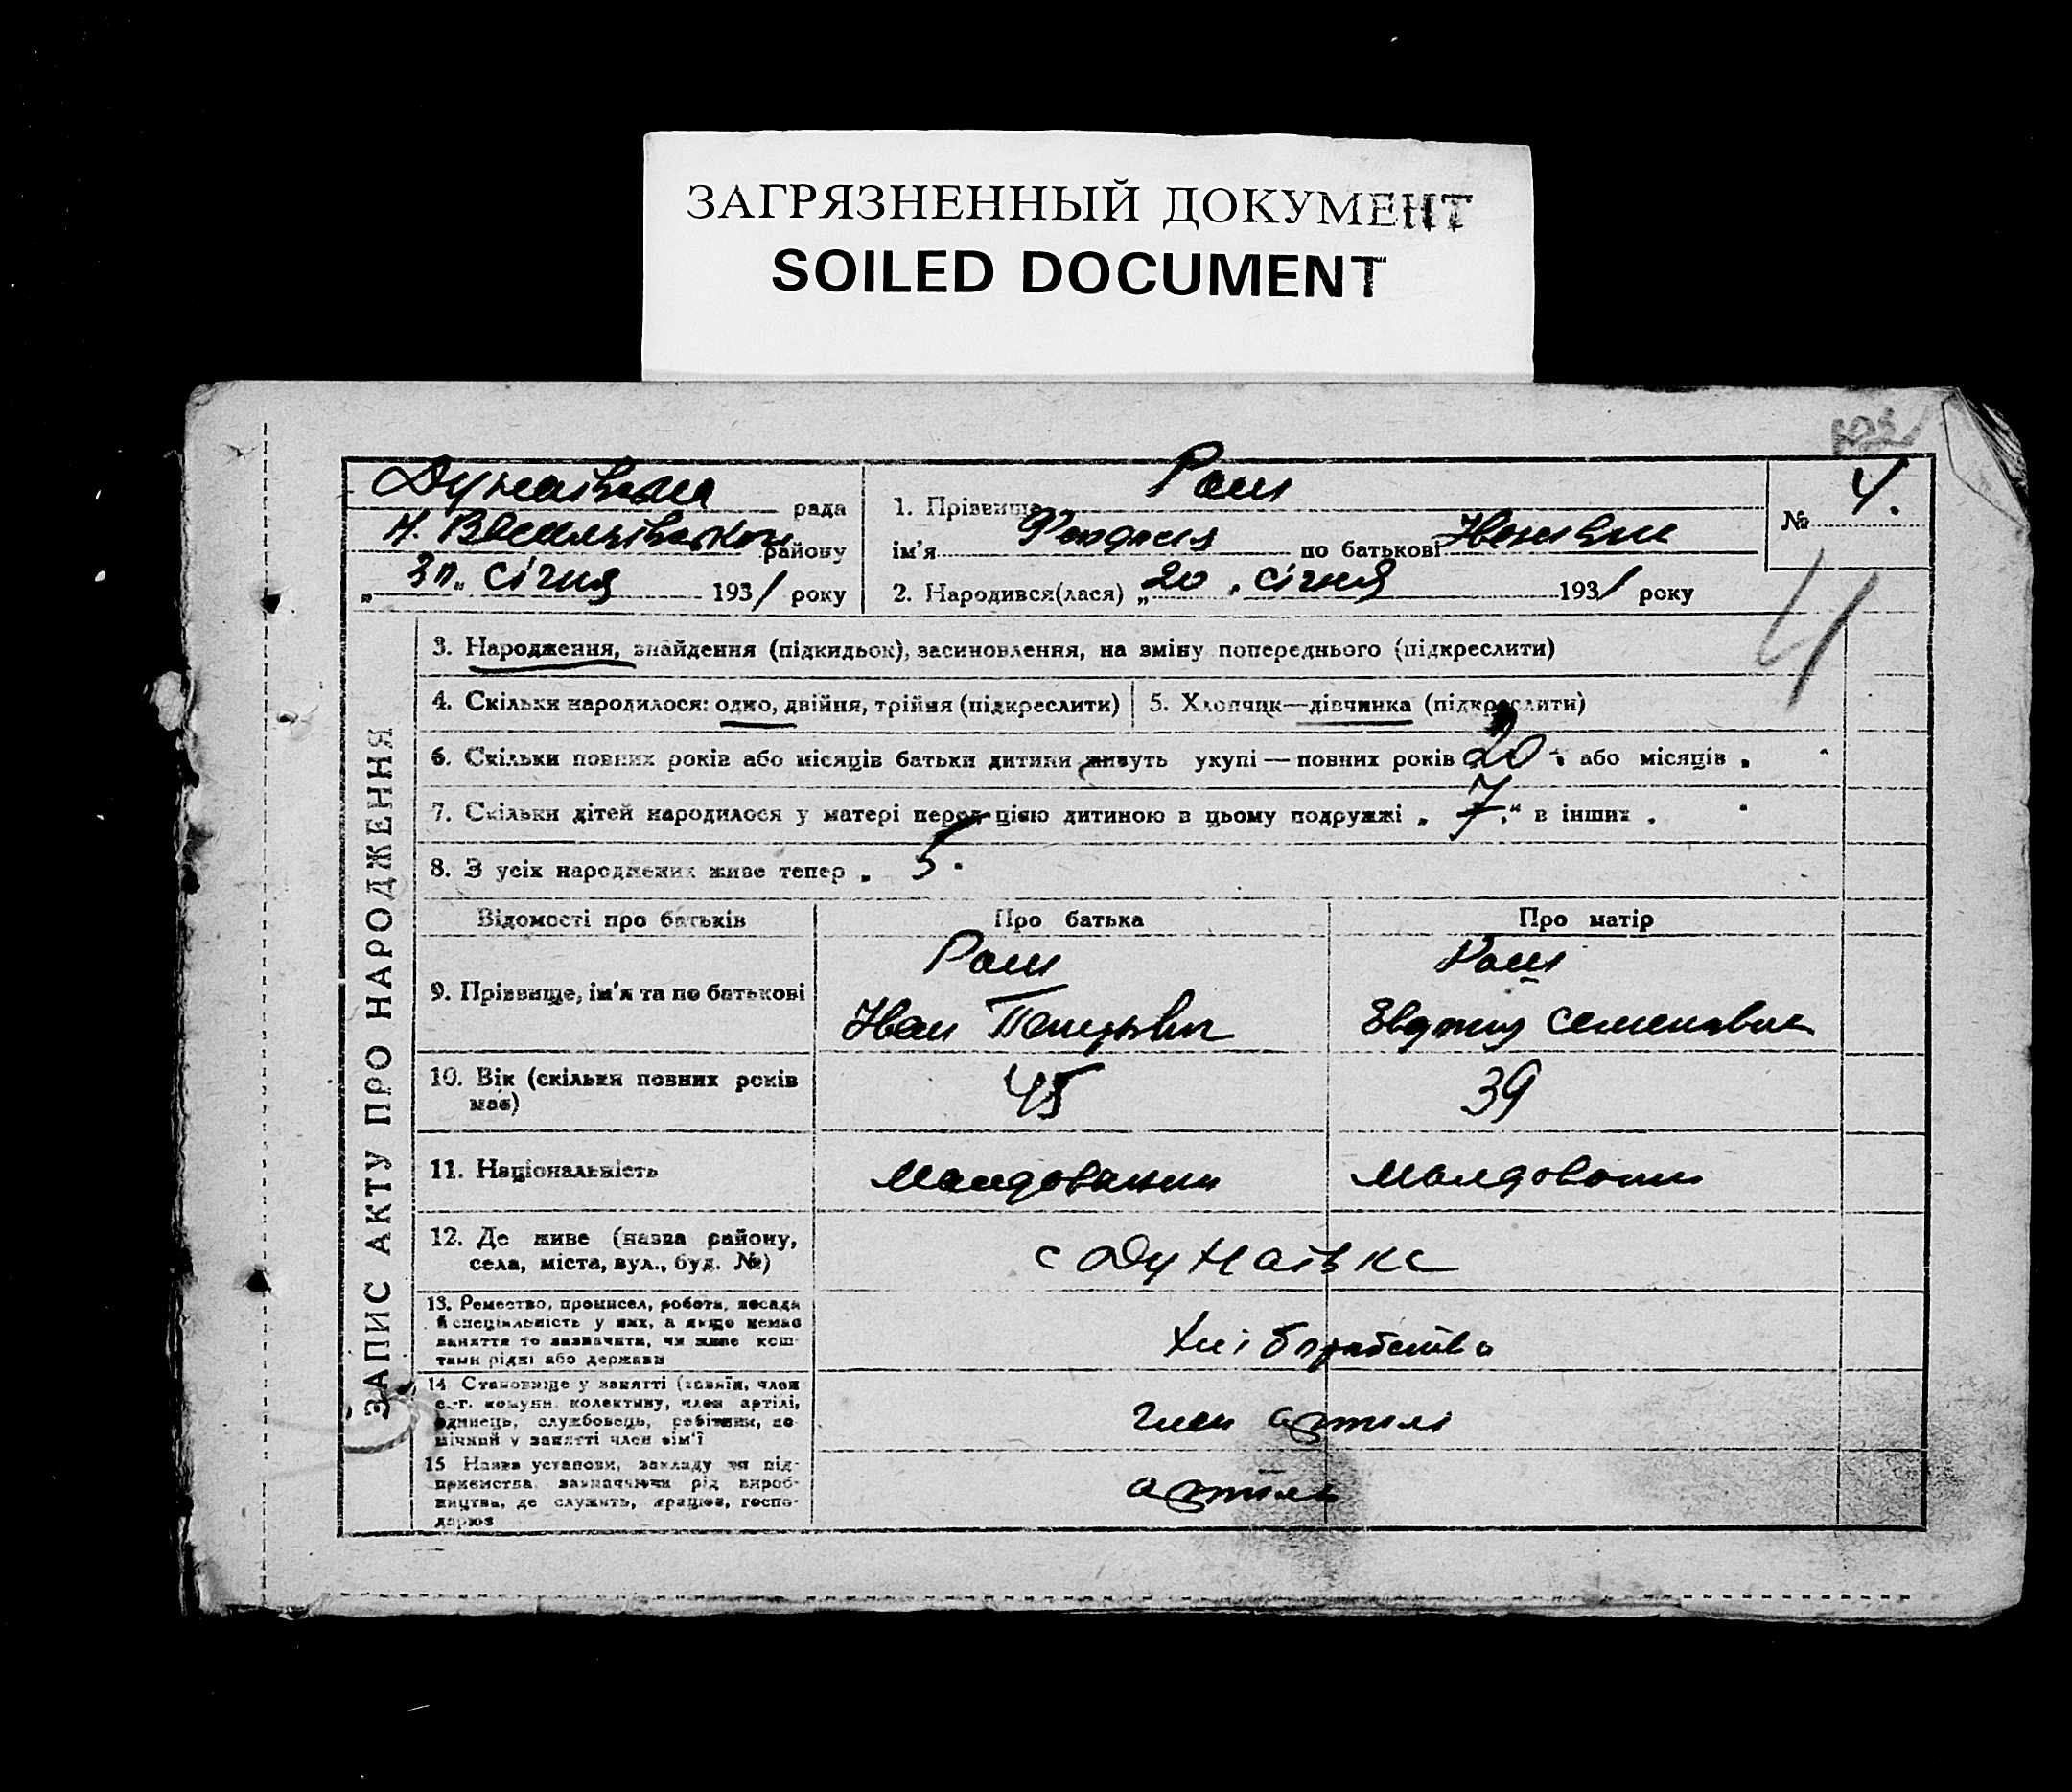 ЗАГРЯЗНЕННЫЙ ДОКУМЕНТ
SOILED DOCUMENT
ЗАПИС АКТУ ПРО НАРОДЖЕННЯ
Дунаївська рада
району
січня 1931 року
1. Прізвище
ім'я по батькові
2. Народився(лася) „20 „ січня 1931 року
№ 4.
4
3. Народження, знайдення (підкидьок), засиновлення, на зміну попереднього (підкреслити)
4. Скільки народилося: одно, двійня, трійня (підкреслити)
5. Хлопчик—дівчинка (підкреслити)
6. Скільки повних років або місяців батьки дитини живуть укупі — повних років 20 або місяців „
7. Скільки дітей народилося у матері перед цією дитиною в цьому подружжі „ 7 “ в інших .
8. З усіх народжених живе тепер „ 5.
Відомості про батьків Про батька Про матір
9. Прізвище, ім'я та по батькові
Іван
10. Вік (скільки повних років має) 45 39
11. Національність молдованин молдован
12. Де живе (назва району, села, міста, вул., буд. №)
с Дунаївка
13. Ремество, промисел, робота, посада й спеціяльність у них, а якщо немає заняття то зазначити, чи живе коштами рідні або держави
хліборобство
14 Становище у занятті (хазяїн, член с.-г. комуни, колективу, член артілі, одинець, службовець, робітник, помічний у занятті член сім'ї
член артілі
15 Назва установи, закладу чи підприємства, зазначаючи рід виробництва, де служить, працює, господарює
артіль